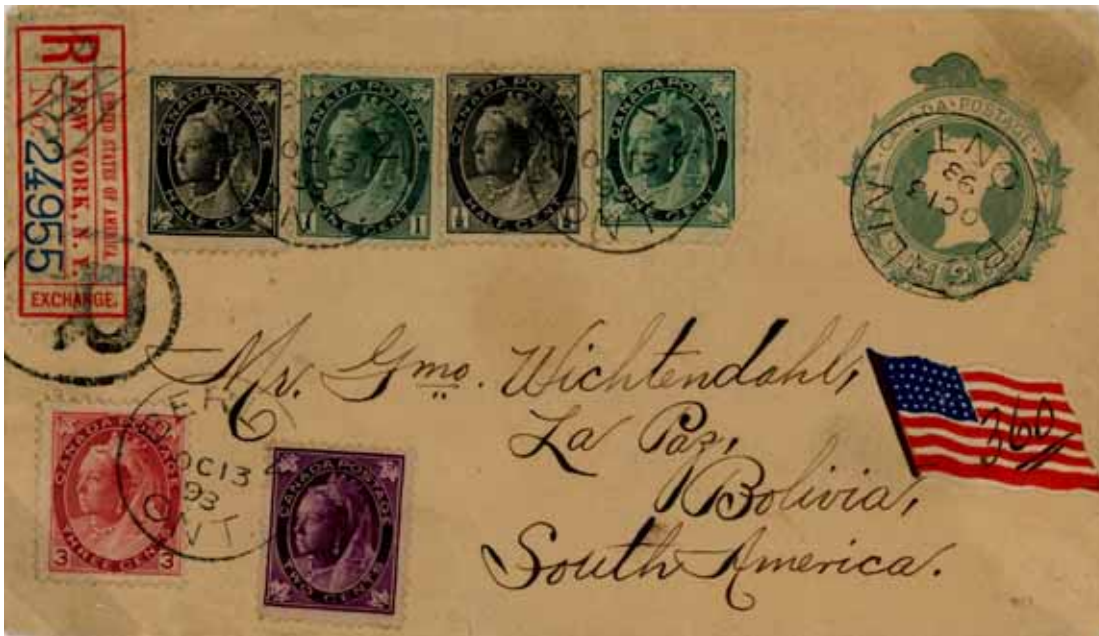 R
No. 24955
UNITED STATES OF AMERICA.
NEW YORK, N. Y.
EXCHANGE.
R
CANADA POSTAGE
HALF CENT
CANADA POSTAGE
1 ONE CENT 1
CANADA POSTAGE
½ HALF CENT
CANADA POSTAGE
ONE CENT
CANADA POSTAGE
BERLIN
OC 13
93
ONT.
Mr. Gmo. Wichtendahl,
La Paz,
Bolivia,
South America.
360
CANADA POSTAGE
3 THREE CENTS 3
OC 13
93
ONT.
CANADA POSTAGE
TWO CENTS